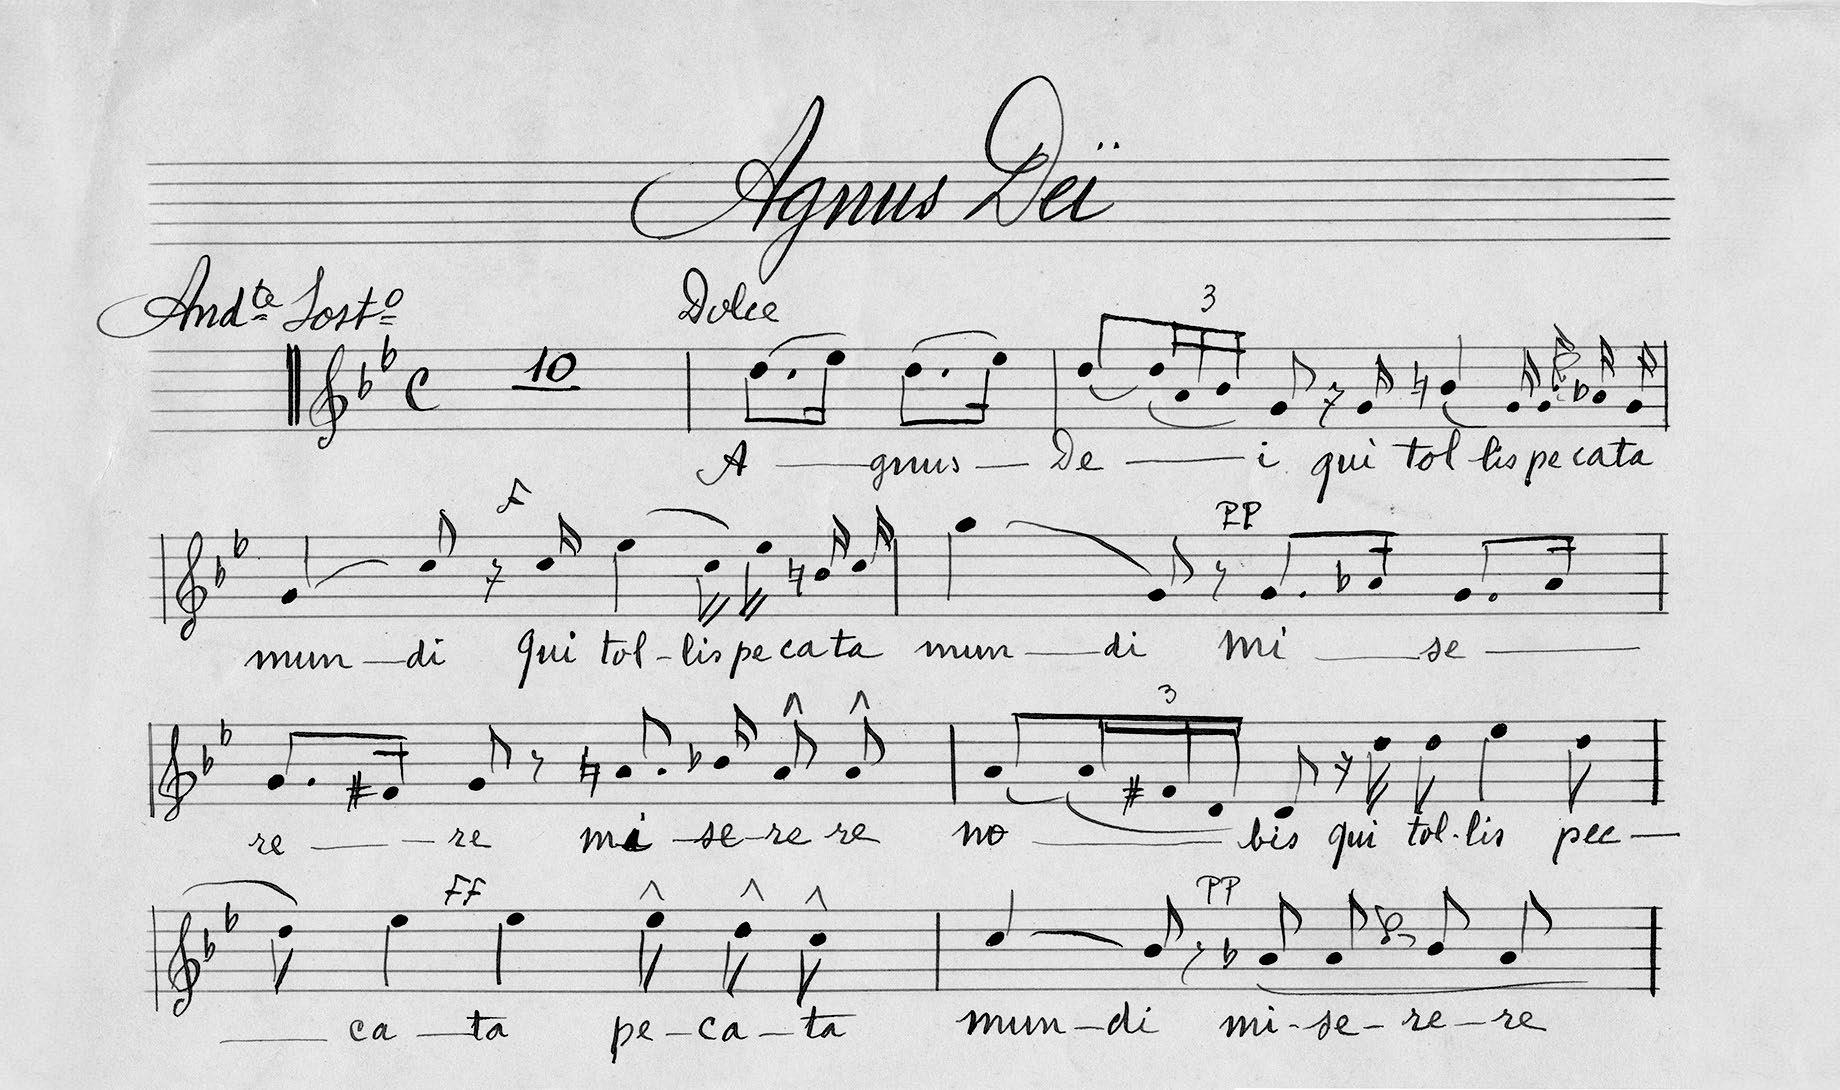 Agnus Deï
And.te Sost.o Dolce 3
10
A — gnus — De — i qui tol - lis pe cata
F PP
mun — di qui tol - lis pe ca ta mun — di mi — se —
3
re — — re mi - se - re re no — bis qui tol - lis pec —
FF PP
— ca — ta pe - ca - ta mun - di mi - se - re - re